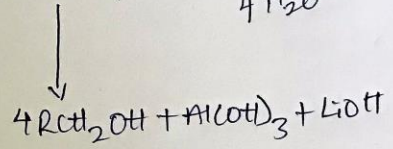 4H2O
4RCH2OH + Al(OH)3 + LiOH